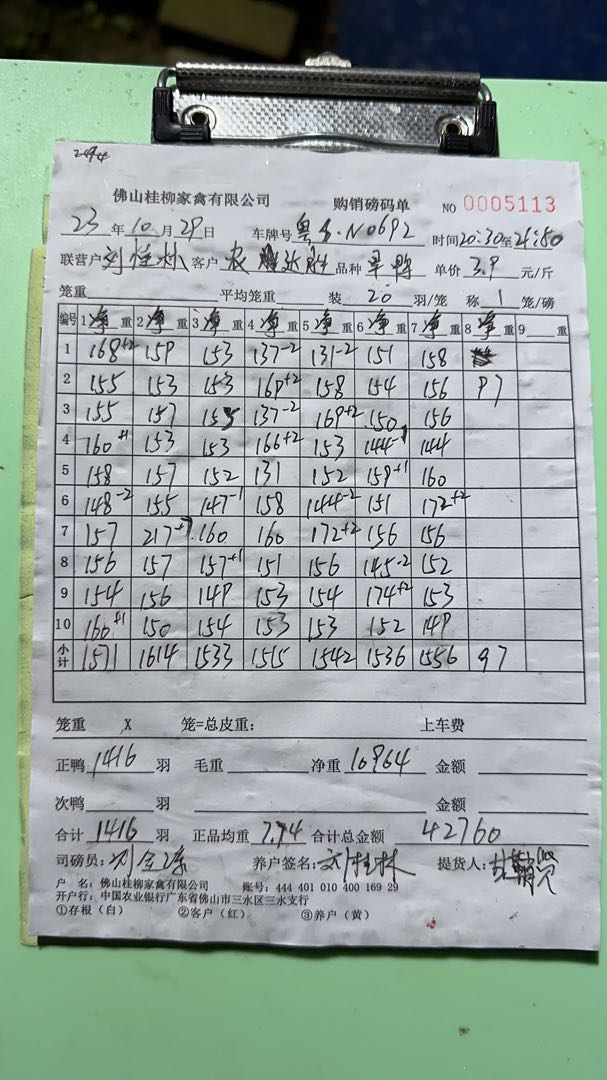 佛山桂柳家禽有限公司 购销磅码单 NO 0005113
23 年 10 月 29 日 车牌号 粤 N0692 时间 20:30 至 21:50
联营户 刘桂林 客户 农 品种 旱鸭 单价 3.9 元/斤
笼重 平均笼重 装 20 羽/笼 称 1 笼/磅
编号 1 净 重 2 净 重 3 净 重 4 净 重 5 净 重 6 净 重 7 净 重 8 净 重 9 重
1 168+2 159 153 137-2 131-2 151 158
2 155 153 153 169+2 158 154 156 97
3 155 157 155 137-2 169+2 150 156
4 160+1 153 153 166+2 153 144-1 144
5 158 157 152 131 152 159+1 160
6 148-2 155 147-1 158 144-2 151 172+2
7 157 217+7 160 160 172+2 156 156
8 156 157 157+1 151 156 145-2 152
9 154 156 149 153 154 174+2 153
10 160+1 150 154 153 153 152 149
小计 1571 1614 1533 1515 1542 1536 1556 97
笼重 X 笼=总皮重: 上车费
正鸭 1416 羽 毛重 净重 10964 金额
次鸭 羽 金额
合计 1416 羽 正品均重 7.74 合计总金额 42760
司磅员: 刘金 养户签名: 刘桂林 提货人:
户 名: 佛山桂柳家禽有限公司 账号: 444 401 010 400 169 29
开户行: 中国农业银行广东省佛山市三水区三水支行
①存根（白） ②客户（红） ③养户（黄）